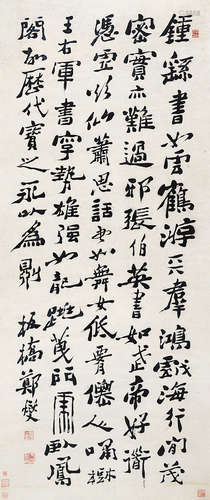 鍾繇書如雲鶴游天群鴻戲海行間茂
密實亦難過邪張伯英書如武帝好道
憑虛欲仙蕭思話書如舞女低腰仙人嘯樹
王右軍書字勢雄强如龍跳天門虎臥鳳
閣故歷代寶之永以為訓 板橋鄭燮